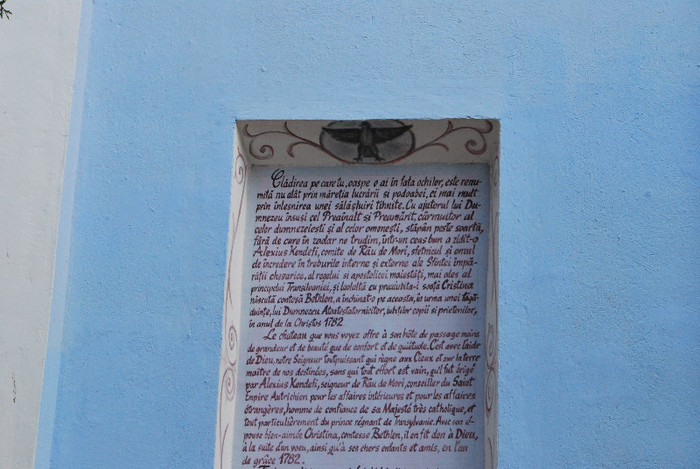 Clădirea pe care tu, oaspe o ai în fața ochilor, este renu-
mită nu atât prin măreția lucrării și podoabei, ci mai mult
prin înlesnirea unei sălășluiri tihnite. Cu ajutorul lui Du-
mnezeu însuși cel Preaînalt și Preamărit, cârmuitor al
celor dumnezeiesti și al celor omnești, stăpân peste soartă,
fără de care în zadar ne trudim, într-un ceas bun a zidit-o
Alexius Kendefi, comite de Râu de Mori, sfetnicul și omul
de încredere în treburile interne și externe ale Sfintei Împă-
rății chesarice, al regelui și apostolicei maiestăți, mai ales al
principelui Transilvaniei, și laolaltă cu preaiubita-i soață Cristina
născută contesă Bethlen, a închinat-o pe aceasta, în urma unei făgă-
duințe, lui Dumnezeu Atoatestatornicitor, iubiților copii și prietenilor,
în anul de la Christos 1782
Le chateau que vous voyez offre à son hôte de passage moins
de grandeur et de beauté que de confort et de quiétude. C'est avec l'aide
de Dieu, notre Seigneur toutpuissant qui règne aux Cieux et sur la terre
maître de nos destinées, sans qui tout effort est vain, qu'il fut érigé
par Alexius Kendefi, seigneur de Râu de Mori, conseiller du Saint
Empire Autrichien pour les affaires intérieures et pour les affaires
étrangères, homme de confiance de sa Majesté très catholique, et
tout particulièrement du prince régnant de Transylvanie. Avec son é-
pouse bien-aimée Christina, comtesse Bethlen, il en fit don à Dieu,
à la suite d'un voeu, ainsi qu'à ses chers enfants et amis, en l'an
de grâce 1782.